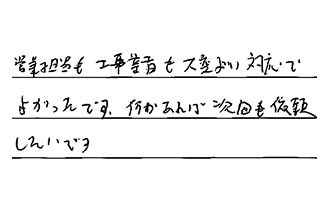 営業担当も工事業者も大変よい対応で
よかったです、何かあれば次回も依頼
したいです